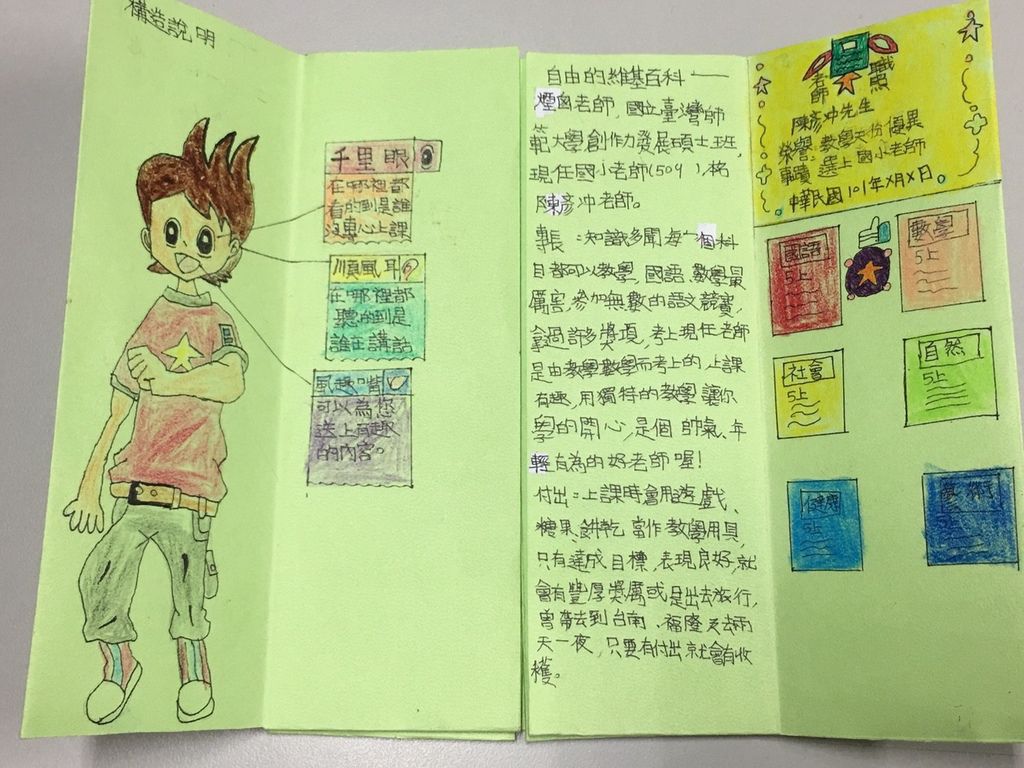 構造說明
千里眼
在哪裡都
看的到是誰
沒專心上課
順風耳
在哪裡都
聽的到是
誰在講話
風趣嘴
可以為您
送上有趣
的內容。
自由的維基百科——
煙囪老師,國立臺灣師
範大學創作力發展碩士班,
現任國小老師(509),名
陳彥冲老師。
專長:知識多聞每個科
目都可以教學,國語、數學最
厲害,參加無數的語文競賽,
拿過許多獎項,考上現任老師
是由教學數學而考上的,上課
有趣,用獨特的教學讓你
學的開心,是個帥氣、年
輕有為的好老師喔!
付出:上課時會用遊戲、
糖果、餅乾當作教學用具,
只有達成目標,表現良好,就
會有豐厚獎勵或是出去旅行,
曾帶去到台南、福隆
天一夜,只要有付出就會有收
穫。
老師
職照
陳彥冲先生
榮譽:教學天份優異
事蹟:選上國小老師
中華民國101年X月X日。
國語
5上
數學
5上
社會
5上
自然
5上
健康
5上
5上